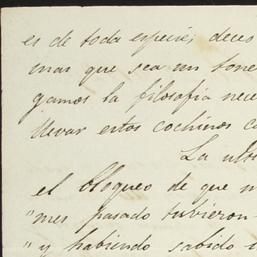 es de toda especie; deceo
mas que sea un tone
gamos la filosofia nece
llevar estos cochinos ca
La ult
el bloqueo de que n
"mes pasado tubieron
"y habiendo sabido